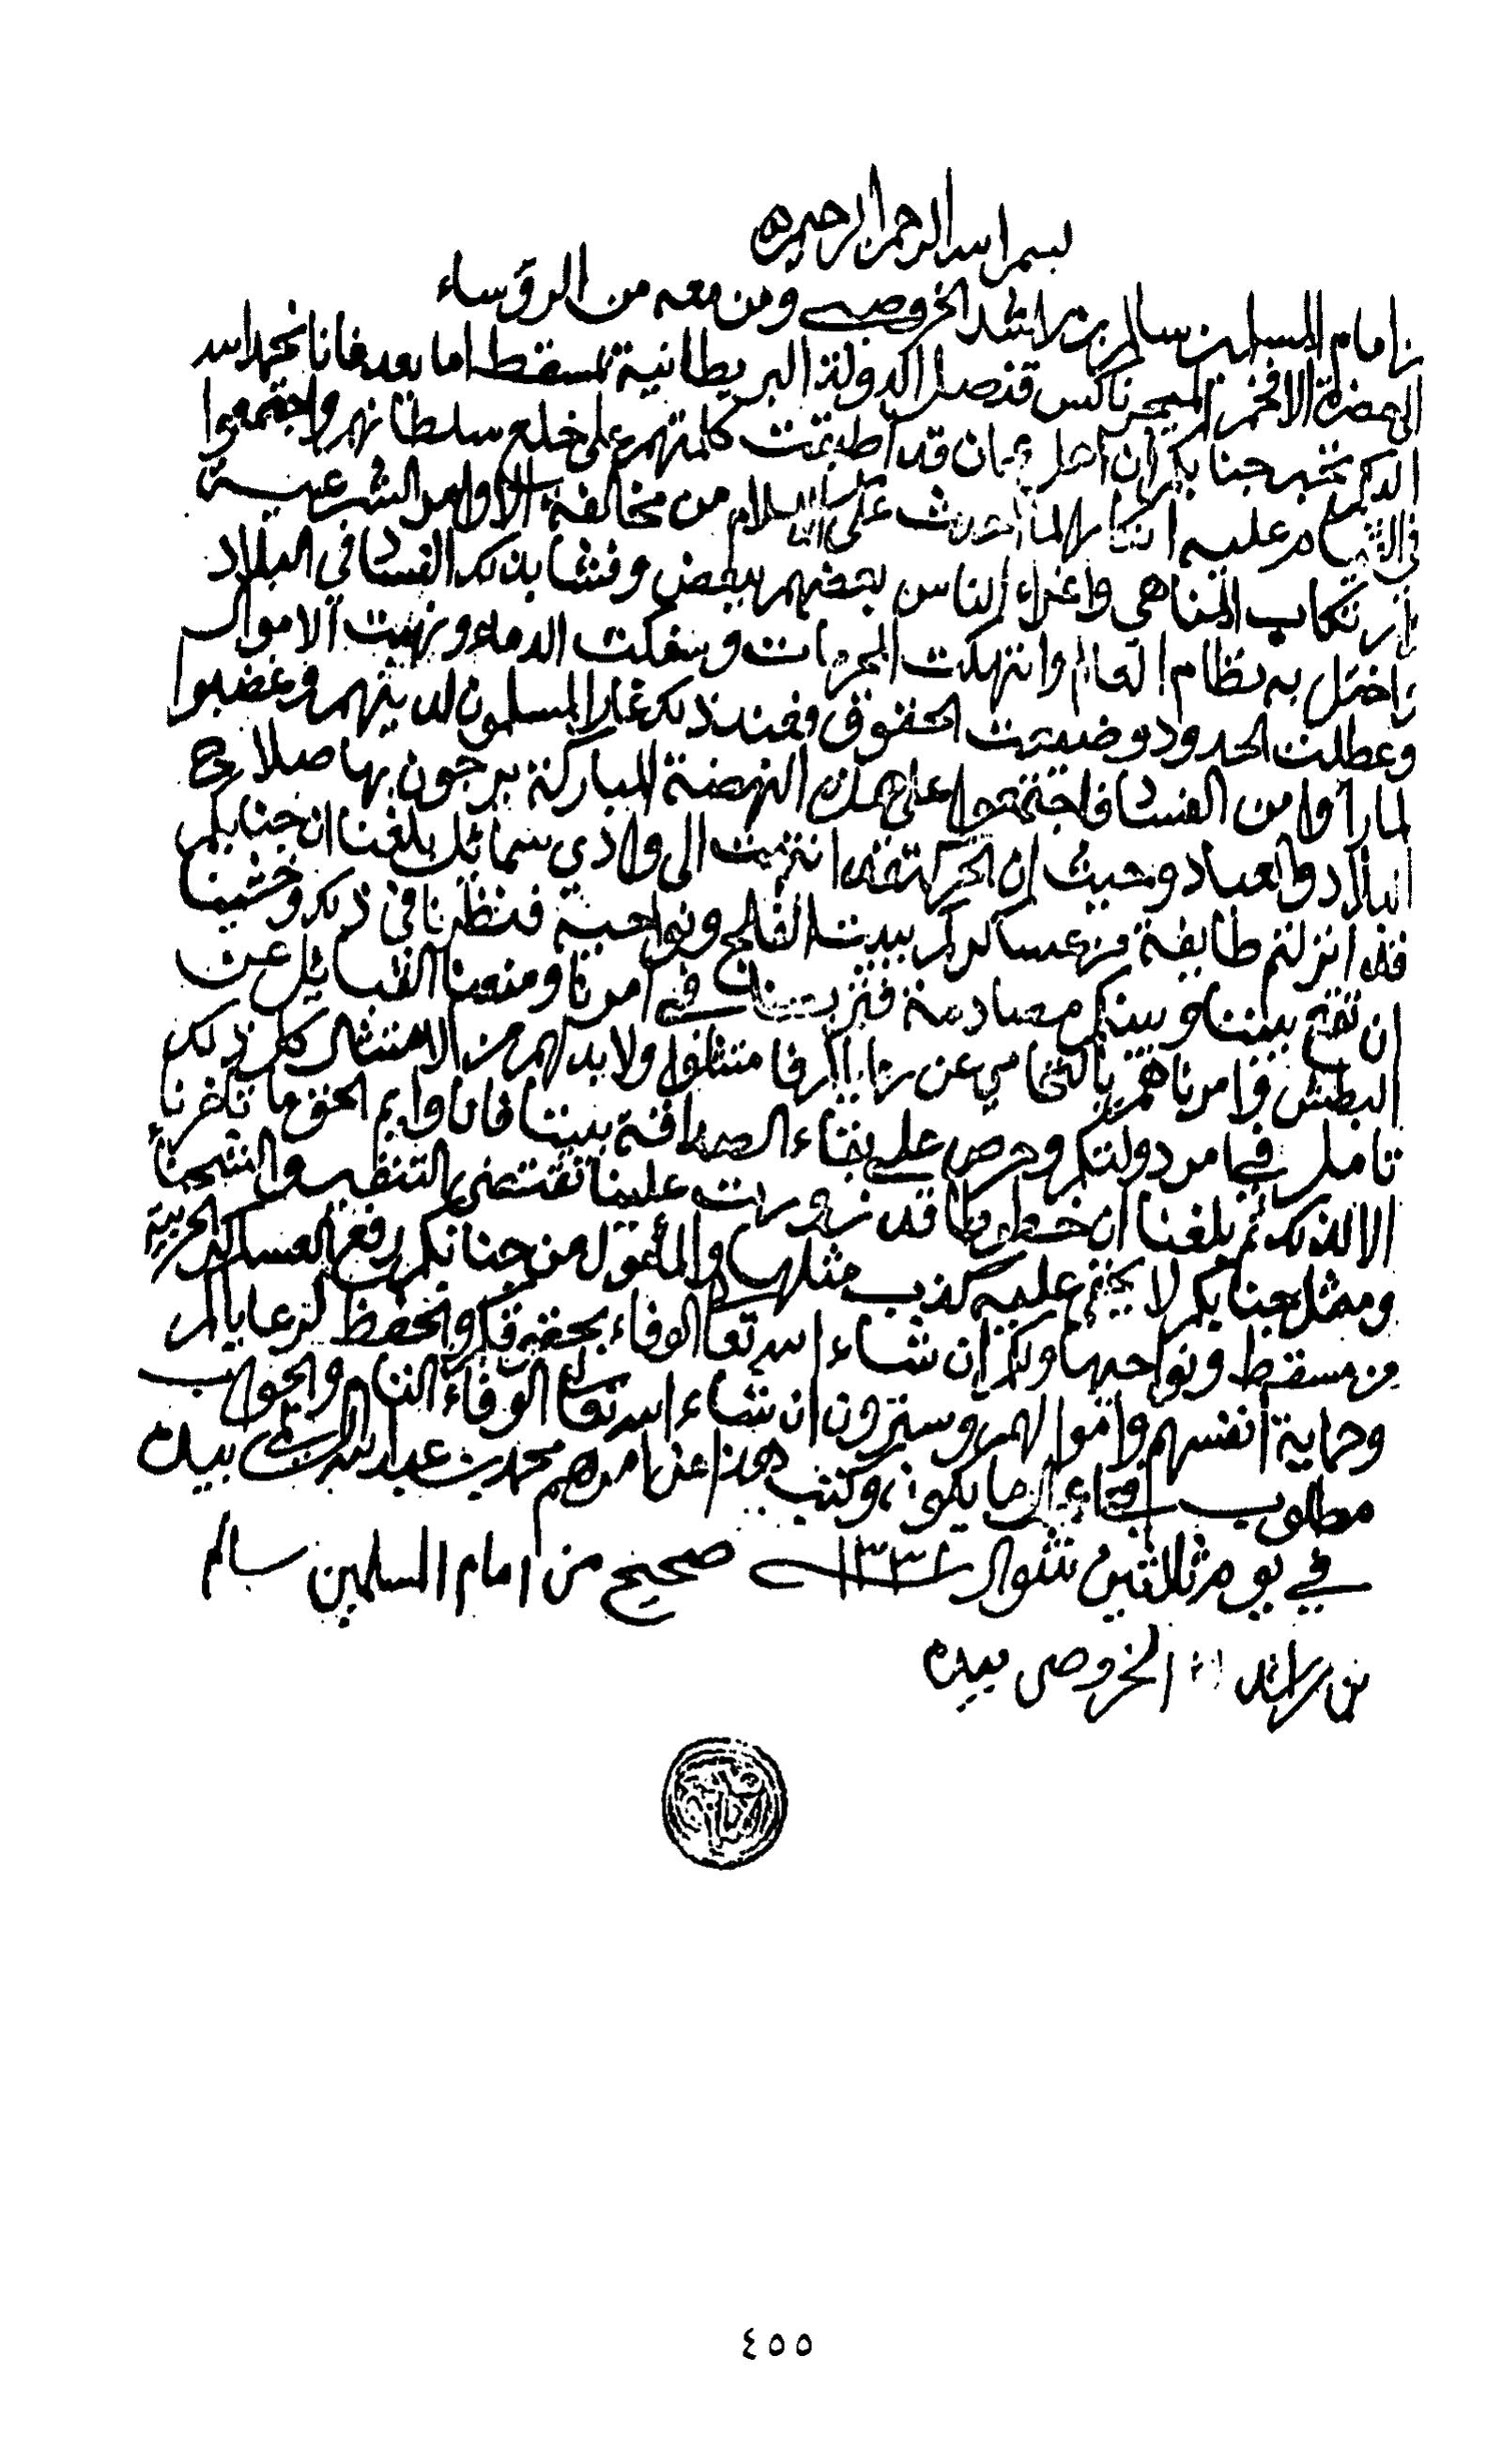 بسم الله الرحمن الرحيم
من امام المسلمين سالم بن راشد الخروصي ومن معه من الرؤساء
الى حضرة الافخم الميجر ناكس قنصل الدولة البريطانية بمسقط اما بعد فانا نحمد الله
اليكم نخبر جنابكم ان اهل عمان قد اطبقت كلمتهم على خلع سلطانهم واجتمعوا
في القيام عليه انكارا لما احدث على الاسلام من مخالفة الاوامر الشرعية
وارتكاب المناهي واغراء الناس بعضهم ببعض وفشا بذلك الفساد في البلاد
واختل به نظام العالم وانتهكت المحرمات وسفكت الدماء ونهبت الاموال
وعطلت الحدود وضيعت الحقوق فعند ذلك غار المسلمون لدينهم وغضبوا
لما رأوا من الفساد فاجتمعوا على هذه النهضة المباركة يرجون بها صلاح
البلاد والعباد وحيث ان الحركة قد انتهت الى وادي سمائل بلغنا ان جنابكم
قد انزلتم طايفة من عساكركم ببيت الفلج ونواحيه فنظرنا في ذلك وخشينا
ان تقع بيننا وبينكم مصادمة فتربصنا في امرنا ومنعنا القبائل عن
البطش وامرناهم بالتحامي عن رعاياكم فامتثلوا ولا بد لهم من الامتثال كل ذلك
تامل في امر دولتكم وحرص على بقاء الصداقة بيننا فانا وايم الحق ما تأخرنا
الا لذلك ثم بلغنا ان خطوطا قد زورت علينا تقتضي التنفير والشحناء
ومثل جنابكم لا يخفى عليه كذب مثلها والمأمول من جنابكم رفع العساكر الحربية
من مسقط ونواحيها ولكم ان شاء الله تعالى الوفاء بحقوقكم والحفظ لرعاياكم
وحماية انفسهم واموالهم وسترون ان شاء الله تعالى الوفاء التام والجواب
مطلوب وكتب هذا عن امرهم محمد بن عبدالله السالمي بيده
في يوم ثلاثين شوال ١٣٣١ صحيح من امام المسلمين سالم
بن راشد الخروصي بيده
٤٥٥